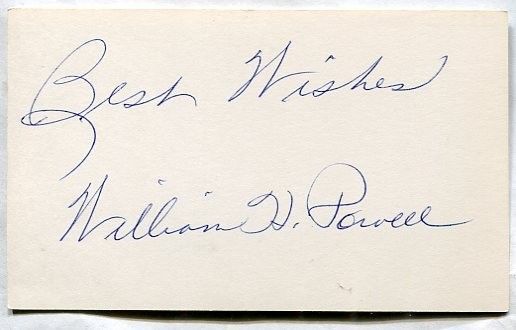 Best Wishes
William H. Powell